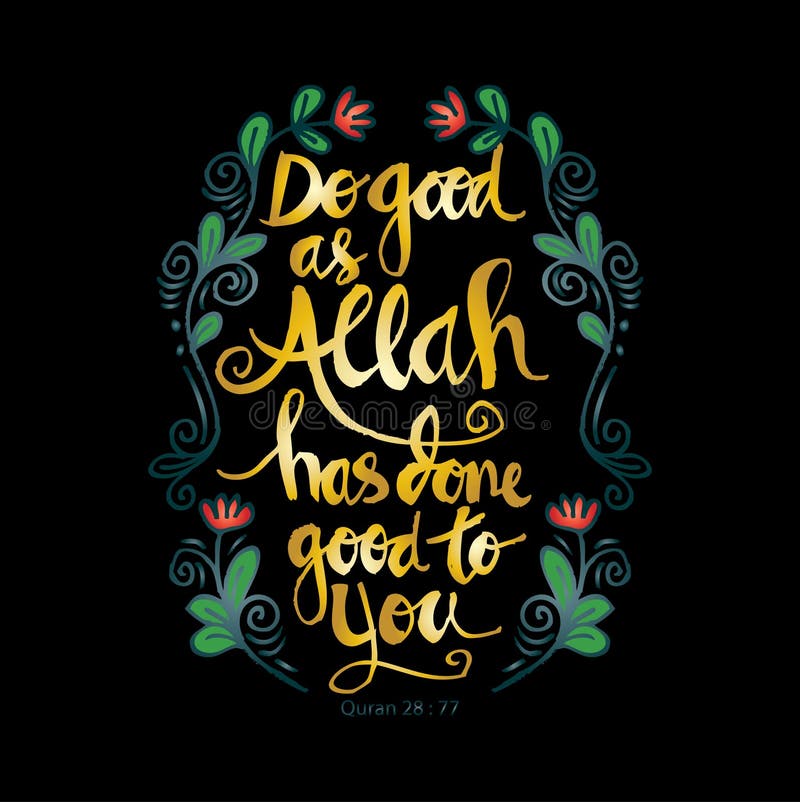 Do good
as
Allah
has done
good to
you
Quran 28 : 77
dreamstime